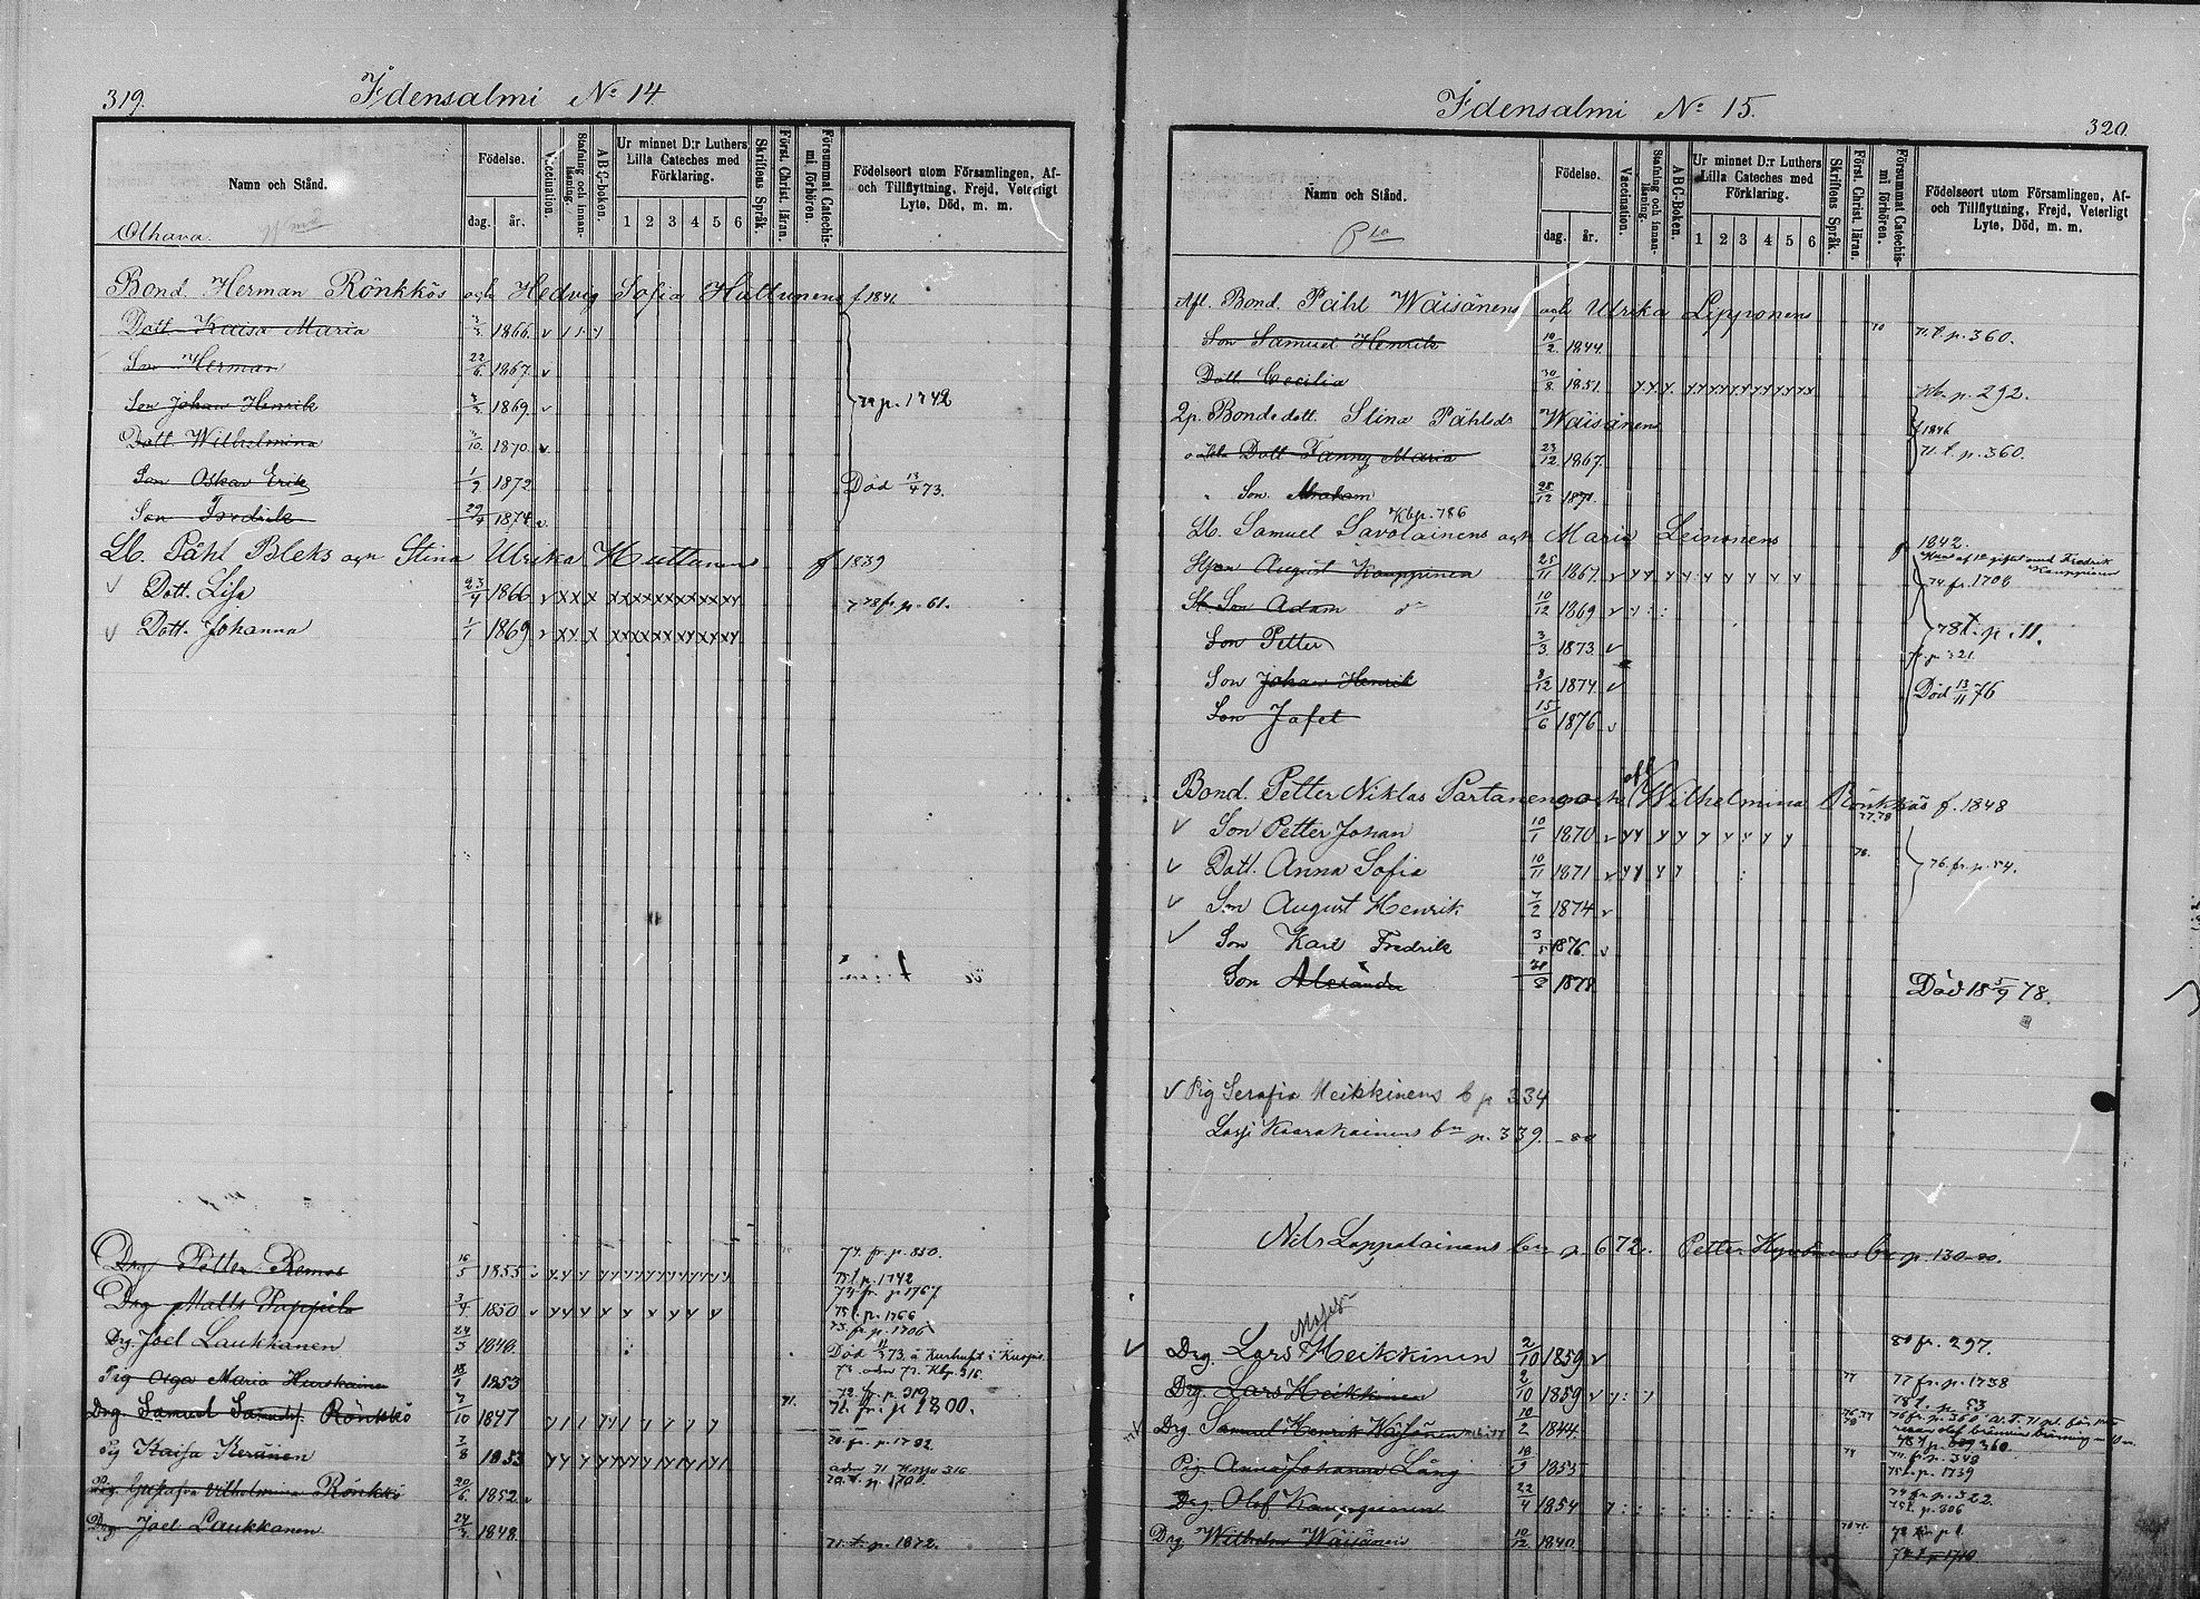 319.
Idensalmi No 14
Namn och Stånd.
Födelse.
dag. år.
Vaccination.
Stafning och innanläsning.
ABC-boken.
Ur minnet D:r Luthers Lilla Cateches med Förklaring.
1 2 3 4 5 6
Skriftens Språk.
Först. Christ. läran.
Försummat Catechismi förhören.
Födelseort utom Församlingen, Af- och Tillflyttning, Frejd, Veterligt Lyte, Död, m. m.
Olhava.
Bond. Herman Rönkkös och Hedvig Sofia Huttunens f 1841
Dott. Kaisa Maria 1866
Son Herman 22/6 1867
Son Johan Henrik 1869 p. 1742
Dott Wilhelmina 1870
Son Oskar Erik 1/2 1872 Död 13/4 73.
Son Fredrik 29/4 1874
Lb. Påhl Bleks och Stina Ulrika Huttunens f 1839
Dott. Lisa 23/4 1866 78 fr. p. 61.
Dott. Johanna 1/1 1869
Drg Petter Remes 16/5 1855 74. fr. p. 850.
75 t. p. 1742
Drg Matts Puppula 3/4 1850 74 fr. p 1767
75 t. p. 1766
Drg. Joel Laukkanen 1848. 73. fr. p. 1706
Död 73. å Kurhuset i Kuopio
Pig Olga Maria Hurskainen 18/1 1853
Drg. Samuel Samuelsf. Rönkkö 7/10 1847 72. fr. p. 319
Pig Kaisa Keränen 7/8 1853
Pig. Gustafva Vilhelmina Rönkkö 20/6 1852
Drg. Joel Laukkanen 1848. 71. t. p. 1672.
Idensalmi No 15.
320.
Namn och Stånd.
Födelse.
dag. år.
Vaccination.
Stafning och innanläsning.
ABC-Boken.
Ur minnet D:r Luthers Lilla Cateches med Förklaring.
1 2 3 4 5 6
Skriftens Språk.
Först. Christ. läran.
Försummat Catechismi förhören.
Födelseort utom Församlingen, Af- och Tillflyttning, Frejd, Veterligt Lyte, Död, m. m.
Afl. Bond. Påhl Wäisänens och Ulrika Lipponens
Son Samuel Henrik 10/2 1844. 71. t. p. 360.
Dott. Cecilia 30/8 1851. Kb. p. 292.
2p. Bondedott. Stina Påhlsdr Wäisänens f 1846
Dott Fanny Maria 23/12 1867. 71. t. p. 360.
Son Abraham 28/12 1871.
Kbp. 786
Lb. Samuel Savolainens och Maria Leinonens f 1842.
Styson August Kauppinen 25/11 1867 74. fr. 1708
St. Son Adam 10/12 1869
Son Petter 3/3 1873 78 t. p. 11.
Son Johan Henrik 8/12 1874 Död 13/11 76
Son Jafet 15/6 1876
Bond. Petter Niklas Partanens och afl Wilhelmina Rönkkös f. 1848
77.78
Son Petter Johan 10/1 1870
Dott. Anna Sofia 10/11 1871 76. fr. p. 54.
Son August Henrik 7/2 1874
Son Karl Fredrik 3/5 1876
Son Alexander 1878 Död 18 5/9 78.
Pig Serafia Heikkinens b p 334
Lassi Kaarakainens bn p. 339. - 80
Nils Lappalainens bn p. 672. Petter bn p. 130-80.
Drg. Lars Heikkinen 2/10 1859 80 fr. 297.
Drg. Lars Heikkinen 2/10 1859 77 fr. p. 1738
78 t. p. 53
Drg Samuel Henrik Wäisänen 10/2 1844
Pig. Anna Johanna Lång 1855 fr. p. 348
75 t. p. 1739
Drg. Olof Kauppinen 22/4 1854 74 fr. p. 322.
75 t. p. 306
Drg Wilhelm Wäisänen 10/12 1840.